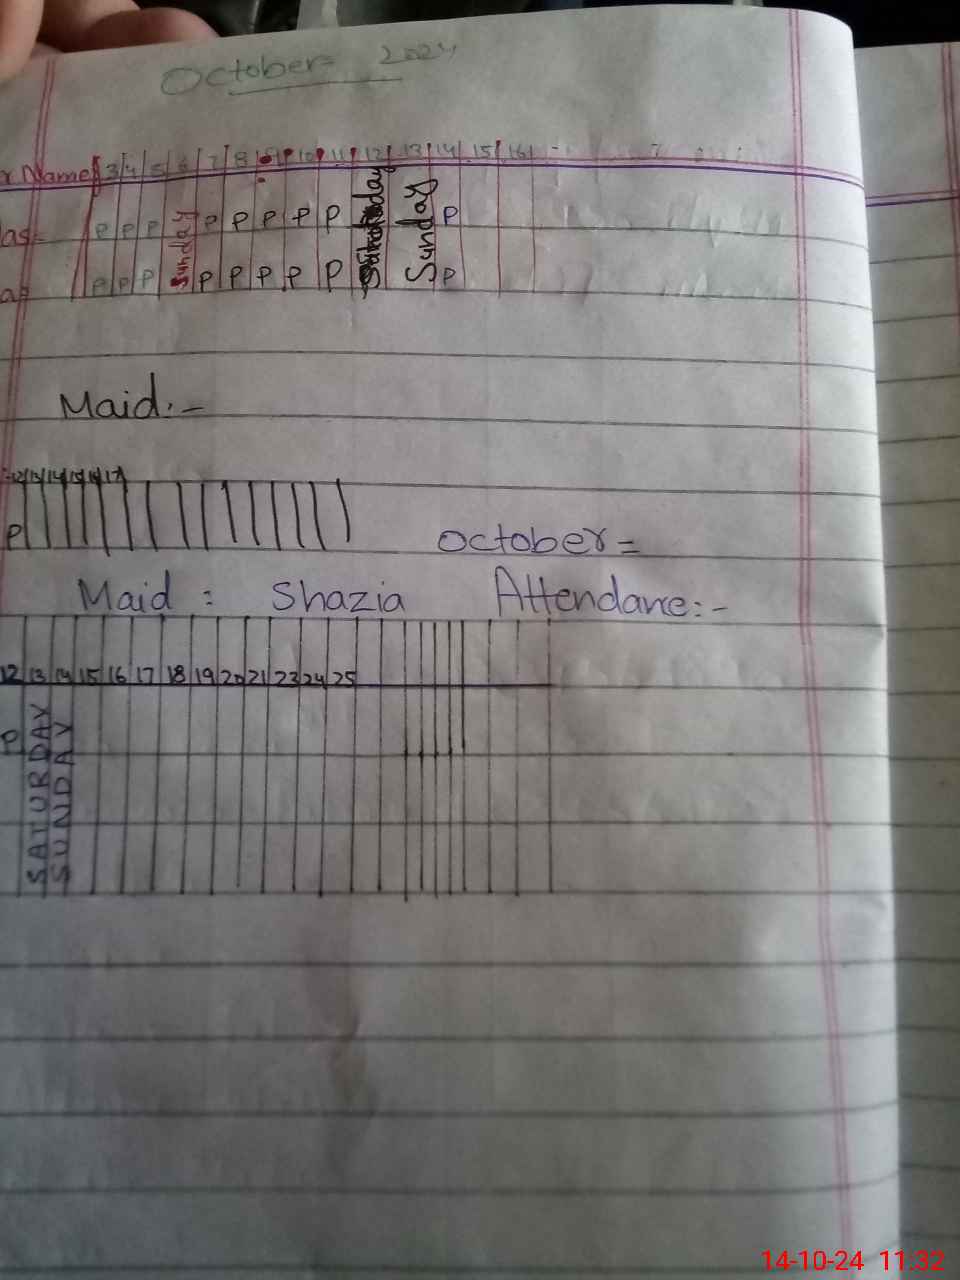 October= 2024
Name 3 4 5 6 7 8 9 10 11 12 13 14 15 16
as= P P P Sunday P P P P P Saturday Sunday P
P P P P P P P P P
Maid:-
12 13 14 15 16 17
P
October=
Maid : Shazia Attendane:-
12 13 14 15 16 17 18 19 20 21 23 24 25
P SATURDAY SUNDAY
14-10-24 11:32